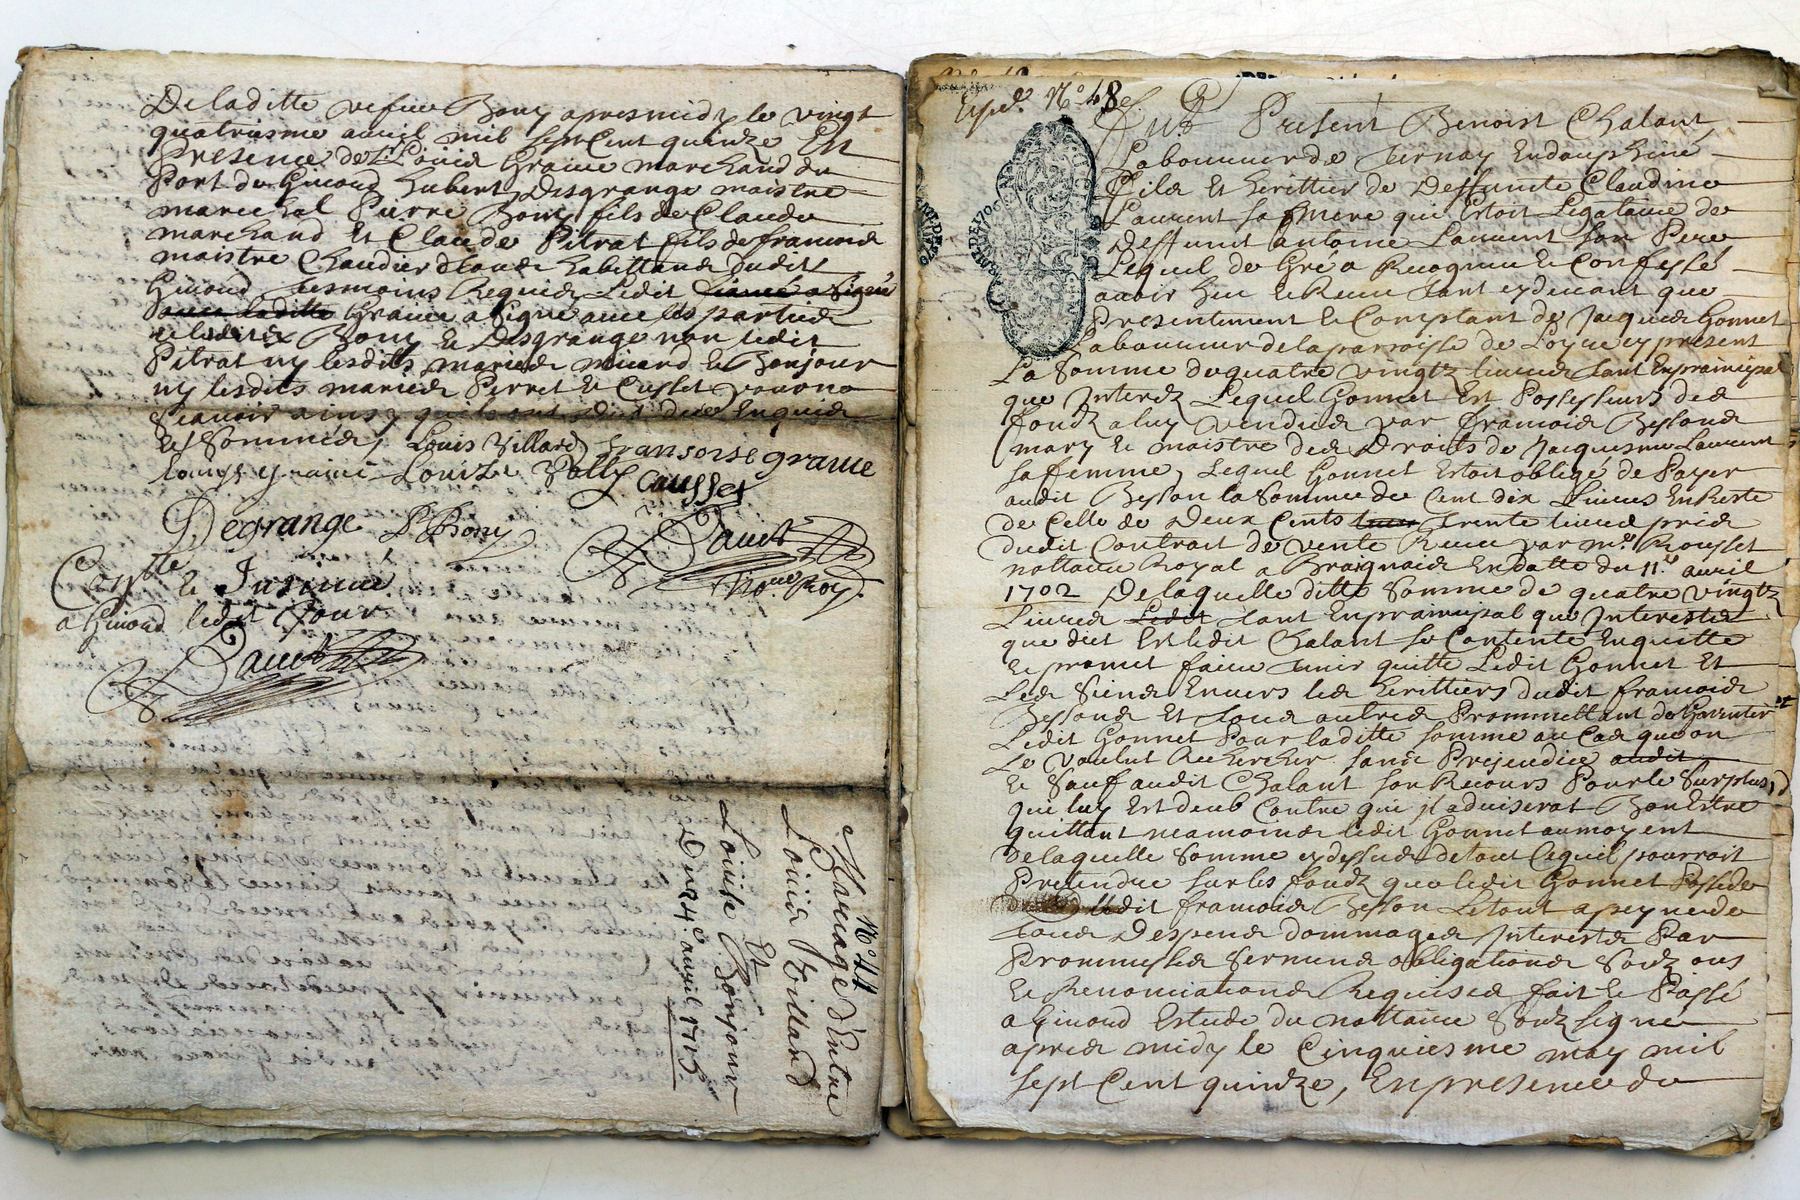 De laditte vefue Bony apres midy le vingt
quatriesme auril mil sept Cent quinze En
Presence de Sr Louis Graine marchand du
Port de Giuord hubert Desgrange maistre
marechal Pierre Bony fils de Claude
marchand Et Claude Pitrat fils de francois
maistre Chandier
Giuord tesmoins Requis Ledit
Graine a Signé auec les parties
Bony Et Desgrange non ledit
Pitrat ny lesdits mariés micard Et Bonjour
ny lesdits mariés Perret Et Cusset pour ne
Scauoir ainsy quils ont dit de ce Enquis
Et Sommés, Louis Villard fransoise graine
Louis graine Louize Causset
Degrange P. Bony
Dauid
Contte Et Insinué
Nore. Roy.
a Giuord ledit Jour
Dauid
No 44
Mariage D'Entre
Louis Villard
Et
Louise Bonjour
Du 24e. auril 1715
Expé. No 48
GEN DE LYON
Fut Present Benoist Chalant
Laboureur de Ternay En dauphiné
Fils Et herittier de Deffunte Claudine
Laurent sa mere qui Estoit Legataire de
Deffunt antoine Laurent son Pere
Lequel de Gré a Recognu Et Confessé
auoir heu Et Receu tant cydeuant que
Presentement Et Comptant de Jacques Gonnet
Laboureur de la parroisse de Loyre cy present
La Somme de quatre vingtz liures tant En principal
que Interez Lequel Gonnet Est Possesseurs des
fondz a luy vendus par francois Besson
mary Et maistre des Droits de Jacquesme Laurent
sa femme, Lequel Gonnet Estoit obligé de Payer
audit Besson la Somme de Cent dix Liures En Reste
de Celle de Deux Cents trente liures prix
dudit Contrat de vente Receu par me. Rousset
nottaire Royal a Brignais En datte du 11e. auril
1702 De laquelle ditte Somme de quatre vingtz
Liures Ledit tant En principal que Interestz
que dict Est ledit Chalant se Contente En quitte
Et promet faire tenir quitte Ledit Gonnet Et
Les Siens Enuers les herittiers dudit francois
Besson Et tous autres Promettant de Garentir
Ledit Gonnet Pour laditte Somme au Cas que on
Le voulut Rechercher sans Prejudice audit
Et Sauf audit Chalant son Recours Pour le Surplus
qui luy Est deub Contre qui j'aduiserat Bon Estre
quittant neamoins ledit Gonnet au moyent
de laquelle Somme cy dessus de tout Ce quil pourroit
Pretendre sur les fondz que ledit Gonnet Possede
dudit francois Besson Le tout a peyne de
tous Despens dommages Interestz Par
Promesses serment obligations Soubz
Et Renonciations Requises fait Et Passé
a Giuord Estude du nottaire Soubz signé
apres midy le Cinquiesme may mil
sept Cent quinze, En presence de